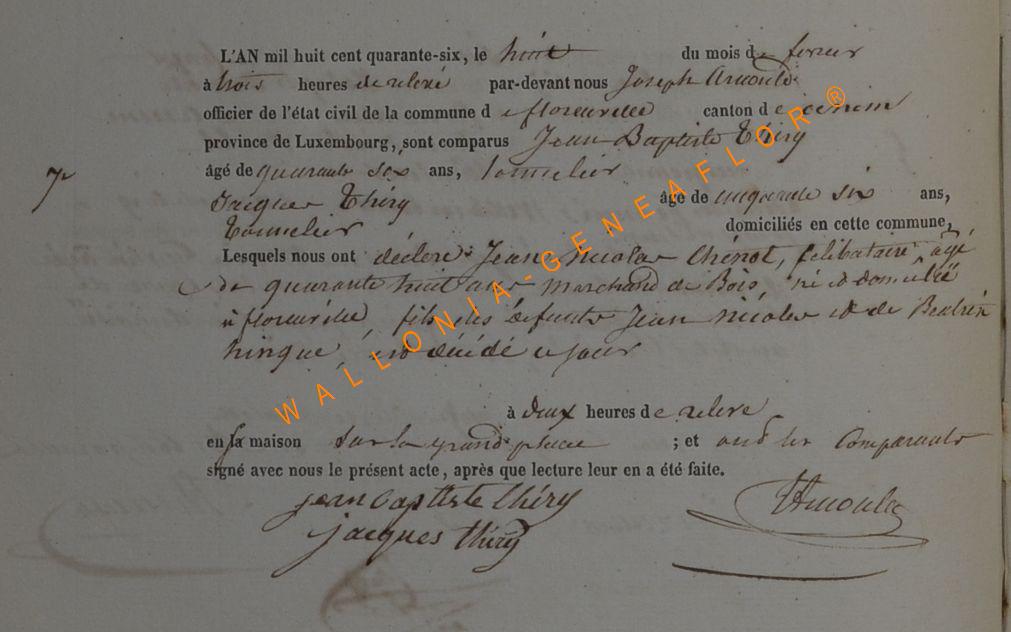 L'AN mil huit cent quarante-six, le huit du mois de fevrier
à trois heures de relevé par-devant nous Joseph Arnould
officier de l'état civil de la commune de florenville canton de
province de Luxembourg, sont comparus Jean Baptiste Thiry
7
âgé de quarante six ans, tonnelier
Jacques Thiry âgé de cinquante six ans,
Tonnelier domiciliés en cette commune,
Lesquels nous ont déclaré Jean Nicolas Thénot, celibataire, agé
de quarante huit ans marchand de Bois, né et domicilié
à florenville, fils des défunts Jean Nicolas et de
est décédé ce jour
à deux heures de relevé
en sa maison sur la grand place ; et ont les Comparants
signé avec nous le présent acte, après que lecture leur en a été faite.
jean baptiste thiry
Arnould
jacques thiry
WALLONIA-GENEAFLOR®